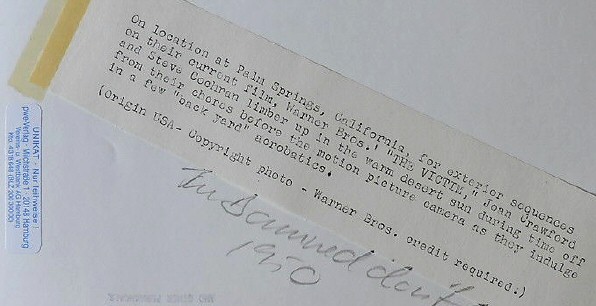 On location at Palm Springs, California, for exterior sequences
on their current film, Warner Bros.' "THE VICTIM," Joan Crawford
and Steve Cochran limber up in the warm desert sun during time off
from their chores before the motion picture camera as they indulge
in a few "back yard" acrobatics.
(Origin USA- Copyright photo - Warner Bros. credit required.)
The Damned don't
1950
UNIKAT - Nur leihweise!
pwe-Verlag 20148 Hamburg
Vereins- u. Westbank AG Hamburg